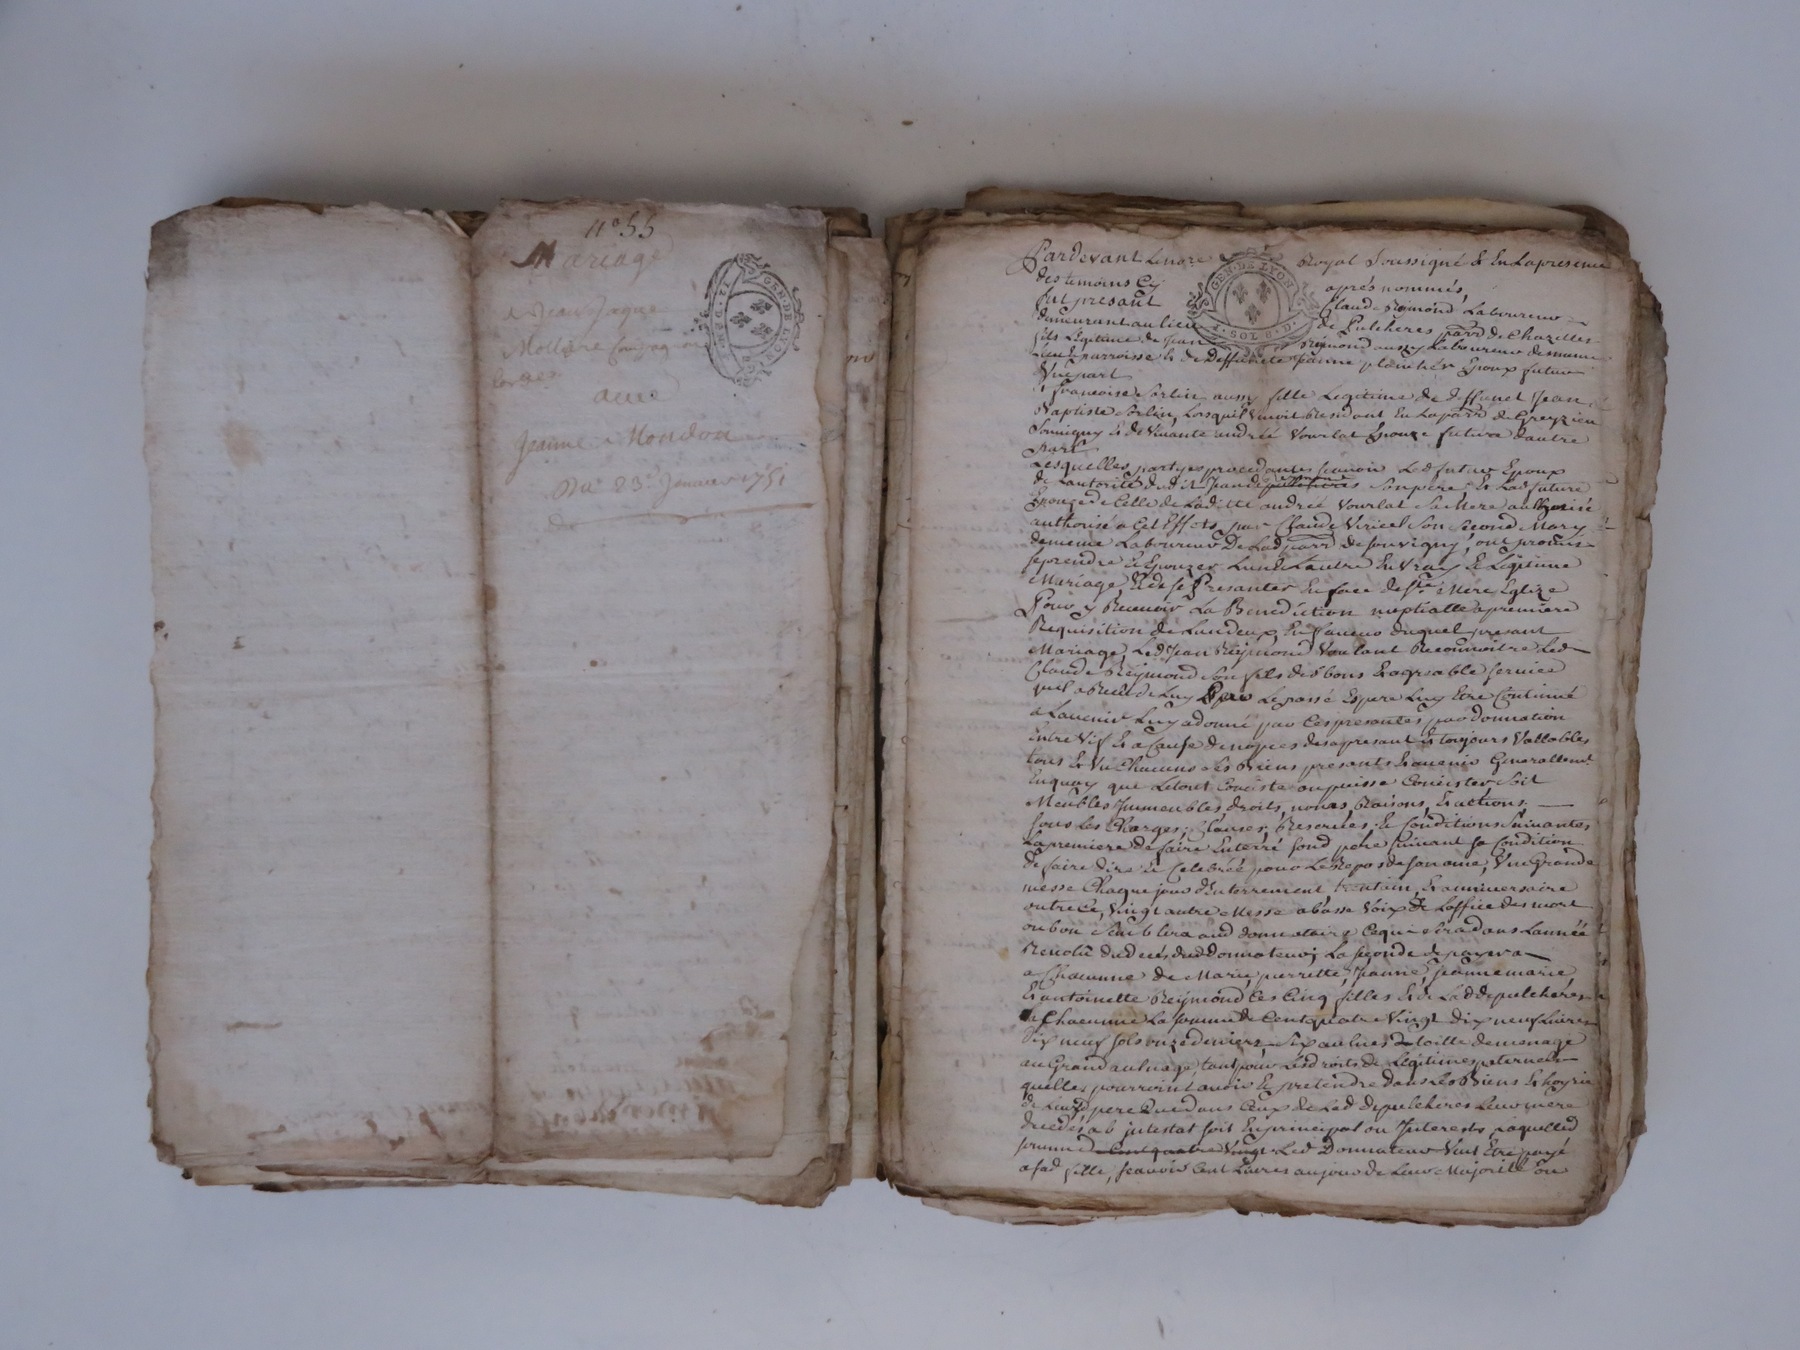 n° 55
Mariage
de Jean Jaque
Mollière
avec
Jeanne Mondon
Du 23e Janvier 1751
GEN. DE LYON
Pardevant Le no.re Royal Soussigné & En La presence
des temoins Cy après nommés,
fut presant Claude Reymond Laboureur
demeurant au lieu de Pulcheres parr. de Chazelles
fils Legitime de Jean Reymond aussy Laboureur de meme
Lieu & parroisse & de Deffunte Jeanne Epoux futur
d'Une part
Et francoise aussy fille Legitime de deffunct Jean
Baptiste Lorsquil vivoit Residant En La parr. de Greyzieu
Souvigny & de Vivante andréé Vourlat Epouze future dautre
part
Lesquelles partyes procedantes scavoir Led futur Epoux
de Lautorité dudit Jean Son père & Lad future
Epouze de Celle de Laditte andréé Vourlat Sa Mere
authorisé a Cet Effets par Claude Viricel Son Second Mary
de meme Laboureur De Lad parr de Souvigny, ont promis
se prendre & Epouzer Lun & Lautre En Vray & Legitime
Mariage, & de se Presanter En face de Ste Mere Eglize
Pour y Recevoir La Benediction nuptialle a premiere
Requisition de Lun deux, En faveur duquel presant
Mariage, Led Jean Reymond Voulant Reconnoitre Led
Claude Reymond Son fils des bons & agreable service
quil a Recu de Luy Par Le passé Espere Luy Etre Continué
a Lavenir Luy a donné par Ces presantes par donnation
Entre Vif & a Cause de nopces des apresant & toujours Vallables
tous & Un Chacuns Ses Biens presents & avenir Generallemt
En quoy que Le tout Conciste ou puisse Concister Soit
Meubles Immeubles, droits, noms, Raisons, & actions,
sous Les Charges, Clauses, Reserves, & Conditions Suivantes
La premiere de faire Enterré Sond père suivant sa Condition
de faire dire & Celebréé pour Le Repos de son ame, Une Grande
messe Chaque jour d'Enterrement, & anniversaire
outre Ce, Vingt autre Messe abasse Voix de Loffice des mort
ou bon Semblera aud donnataire Ce qui Sera dans Lannéé
Revolü du decés dud Donnateur; La seconde de payer a
a Chacunne de Marie, pierrette, Jeanne, Jeannemarie,
& antoinette Reymond Ces Cinq filles & de Lad depulcheres
a Chacunne La somme de Cent quatre Vingt dix neuf Livres
dix neuf sols onze deniers Six aulnes de toille de menage
au Grand aulnage, tant pour Les droits de Legitimes paternels
quelles pourroint avoir & pretendre dans Les Biens & hoyrie
de Leurd pere Que dans Ceux de Lad depulcheres Leur mere
decedés ab intestat soit En principal ou Interests, Laquelled
somme Led Donnateur Veut Etre payé
a sad fille, scavoir Cent Livres au jour de Leur Majorité ou